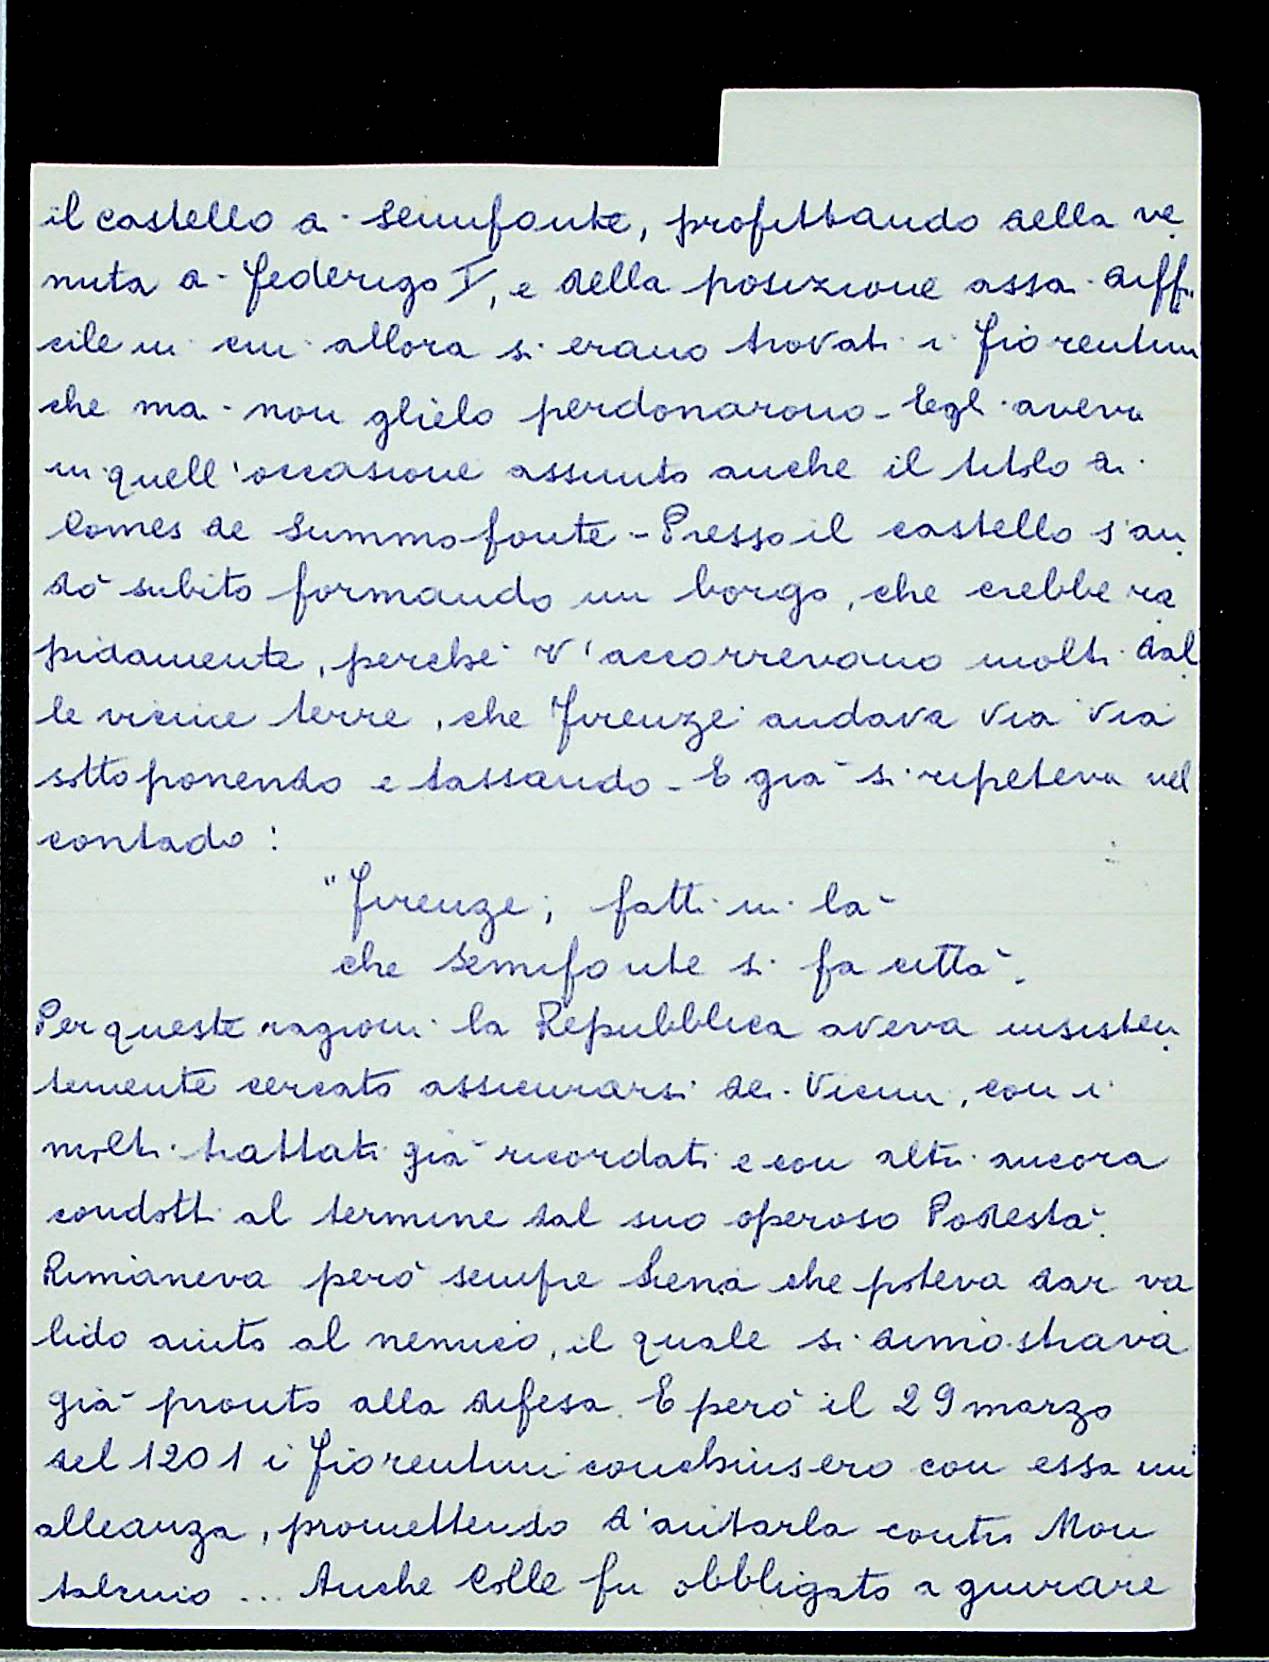 il castello di Semifonte, profittando della ve
nuta di Federigo I, e della posizione assai diffi
cile in cui allora si erano trovati i Fiorentini
che mai non glielo perdonarono - Egli aveva
in quell'occasione assunto anche il titolo di
Comes de Summofonte - Presso il castello s'an
dò subito formando un borgo, che crebbe ra
pidamente, perché v'accorrevano molti dal
le vicine terre, che Firenze andava via via
sottoponendo e tassando - E già si ripeteva nel
contado :
"Firenze, fatti in là
che Semifonte si fa città.
Per queste ragioni la Repubblica aveva insisten
temente cercato assicurarsi dei vicini, con i
molti trattati già ricordati e con altri ancora
condotti al termine dal suo operoso Podestà.
Rimaneva però sempre Siena che poteva dar va
lido aiuto al nemico, il quale si dimostrava
già pronto alla difesa. E però il 29 marzo
del 1201 i Fiorentini conchiusero con essa un'
alleanza, promettendo d'aiutarla contro Mon
talcino ... Anche Colle fu obbligato a giurare